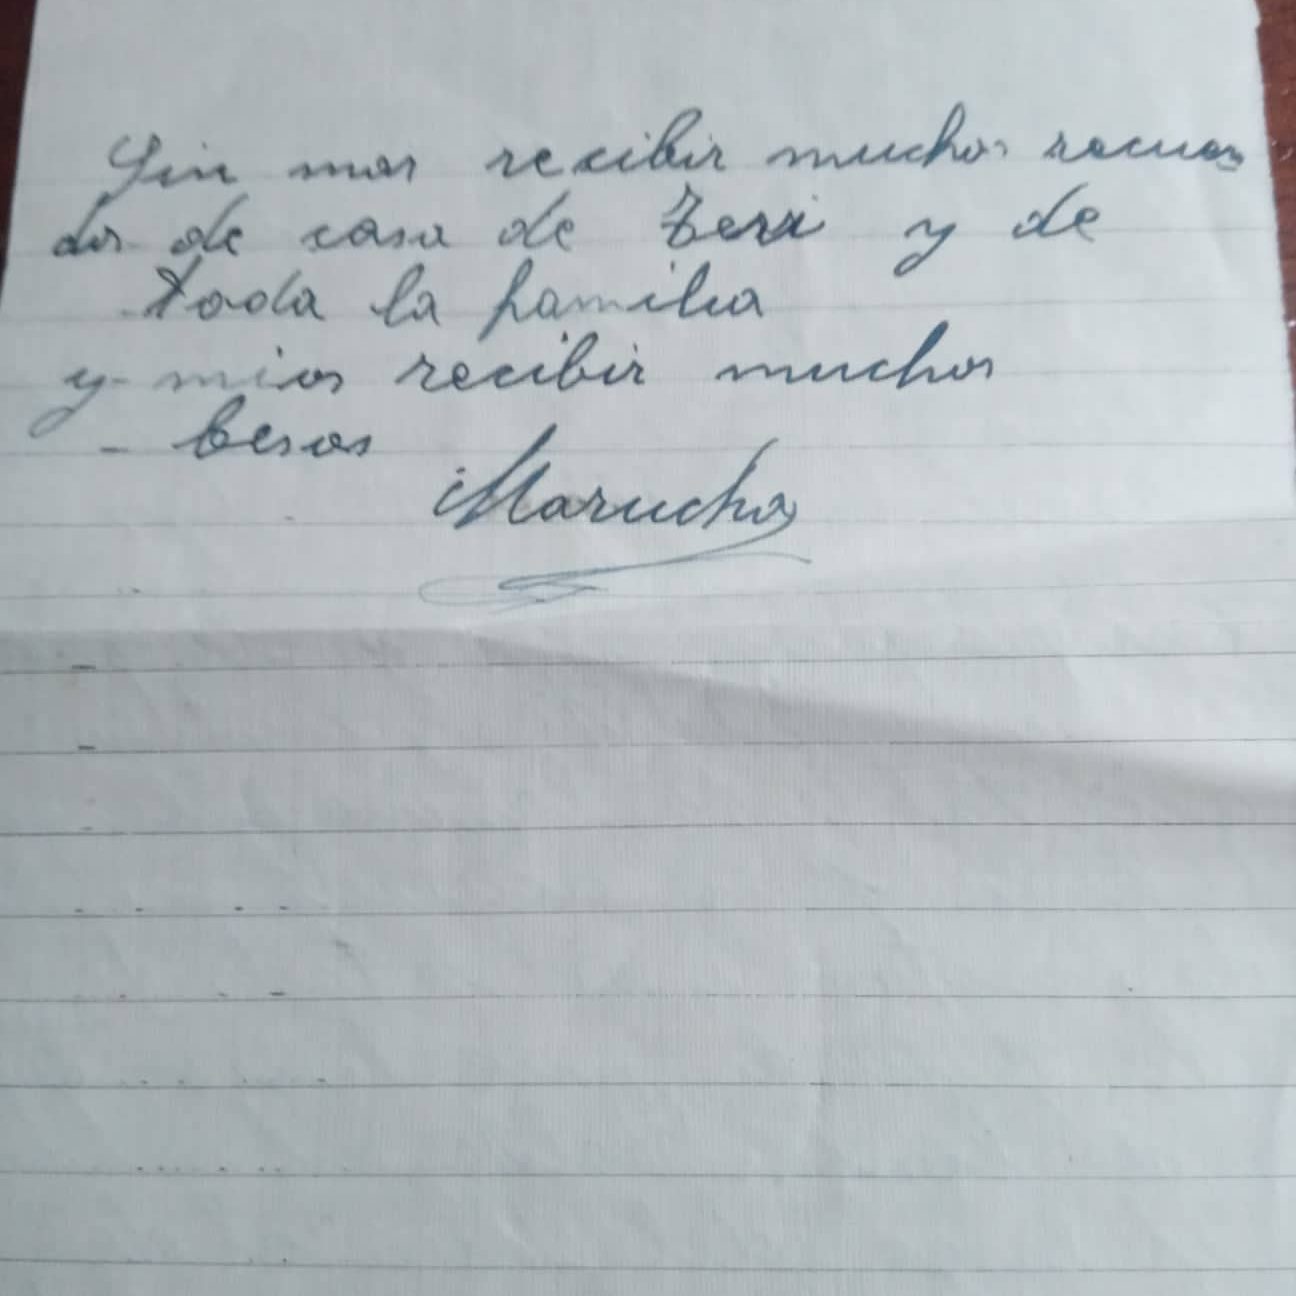 Sin mas recibir muchos recuer
dos de casa de Teri y de
toda la familia
y mios recibir muchos
besos
Marucha